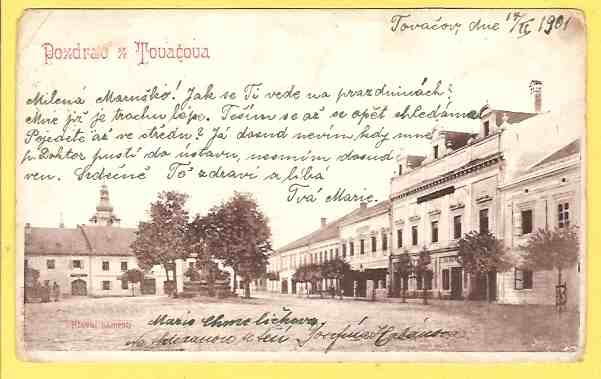 Tovačov, dne 14/IV 1901
Pozdrav z Tovačova
Milená Maruško! Jak se Ti vede na prazdninách?
Mně již je trochu lépe. Těším se až se opět shledáme.
Pojedeš až ve středu? Já dosud nevím kdy mne
p. Doktor pustí do ústavu, nesmím dosud
ven. Srdečně Tě zdraví a líbá
Tvá Marie.
Hlavní náměstí
Marie Chmelíčkova
Josefina